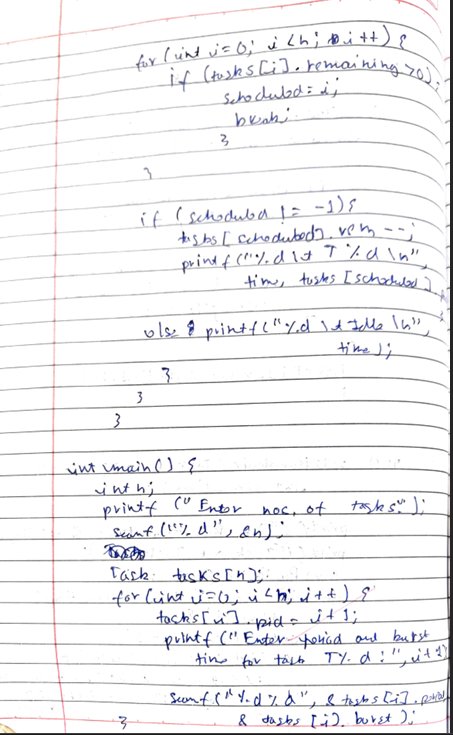 for (int i=0; i<n; i++) {
if (tasks[i].remaining >0)
scheduled = i;
break;
}
}
if (scheduled != -1) {
tasks[scheduled].rem--;
printf ("%d \t T %d \n",
time, tasks [scheduled].
else { printf ("%d \t Idle \n",
time);
}
}
}
int main() {
int n;
printf (" Enter nos. of tasks:");
scanf ("%d", &n);
Task tasks[n];
for (int i=0; i<n; i++) {
tasks[i].pid = i+1;
printf ("Enter period and burst
time for task T%d :", i+1)
scanf ("%d %d", & tasks[i].period
& tasks [i].burst );
}